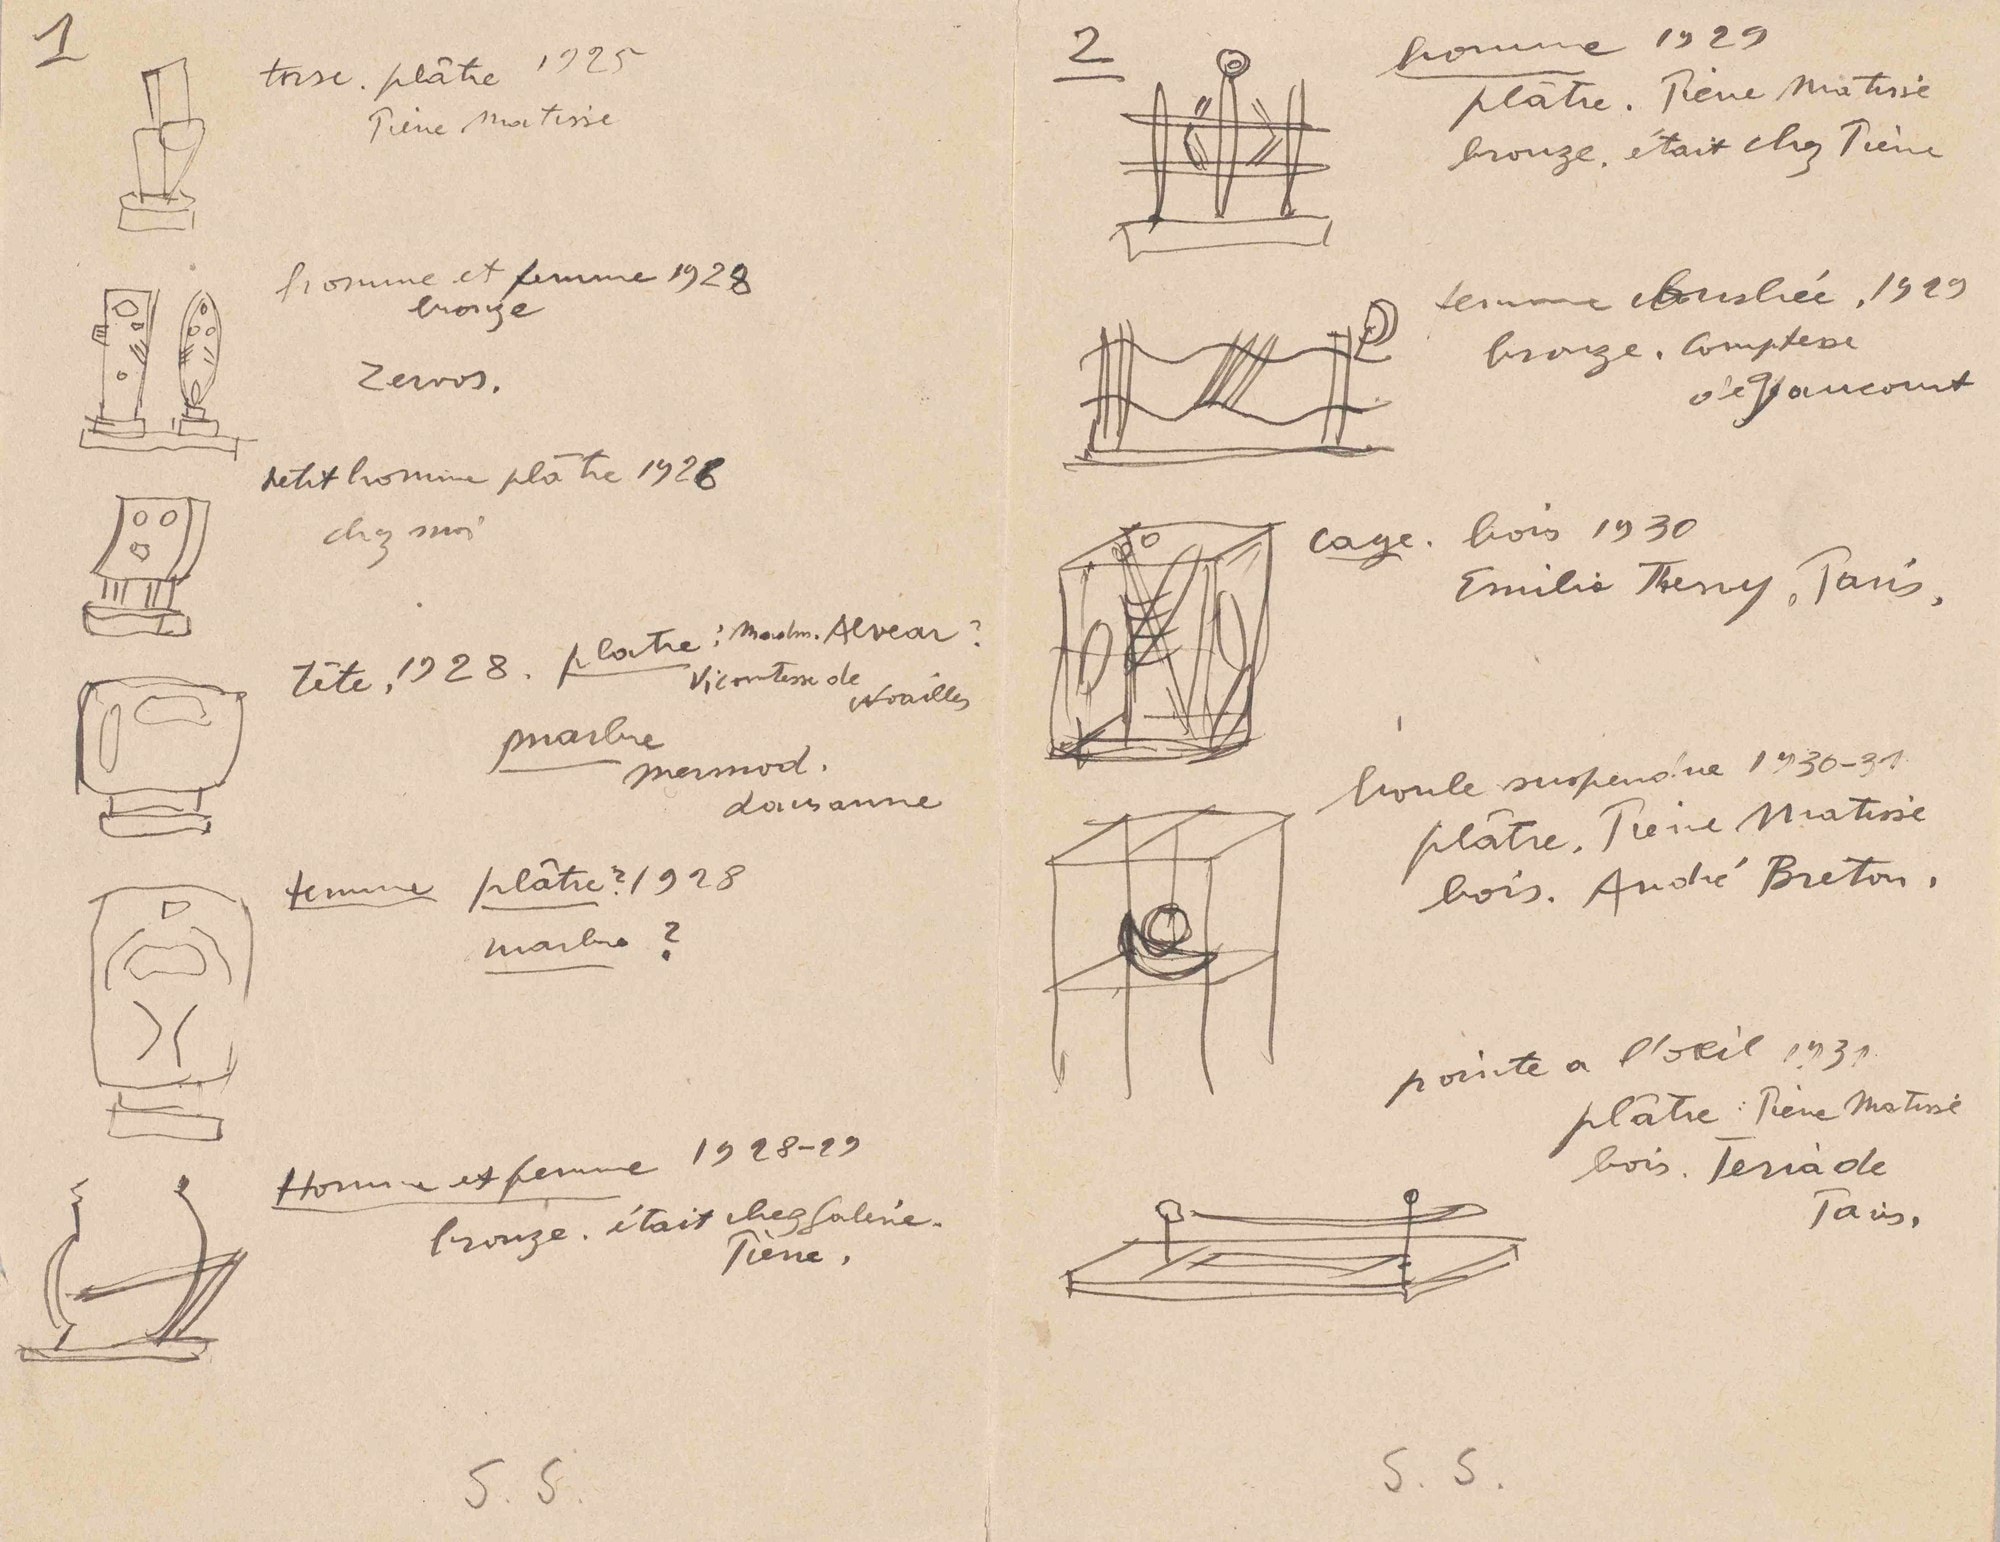 1
torse. plâtre 1925
Pierre Matisse
homme et femme 1928
bronze
Zervos.
petit homme plâtre 1928
chez moi
tête, 1928. platre: Madm. Alvear?
Vicomtesse de
Noailles
marbre
mermod.
Lausanne
femme plâtre? 1928
marbre ?
Homme et femme 1928-29
bronze. était chez Galerie.
Pierre.
S. S.
2
homme 1929
plâtre. Pierre Matisse
bronze. était chez Pierre
femme couchée, 1929
bronze. Comptesse
de Jaucourt
cage. bois 1930
Emilio Therry, Paris,
boule suspendue 1930-31
plâtre. Pierre Matisse
bois. André Breton.
pointe a l'oeil 1931
plâtre: Pierre Matisse
bois. Teriàde
Paris.
S. S.